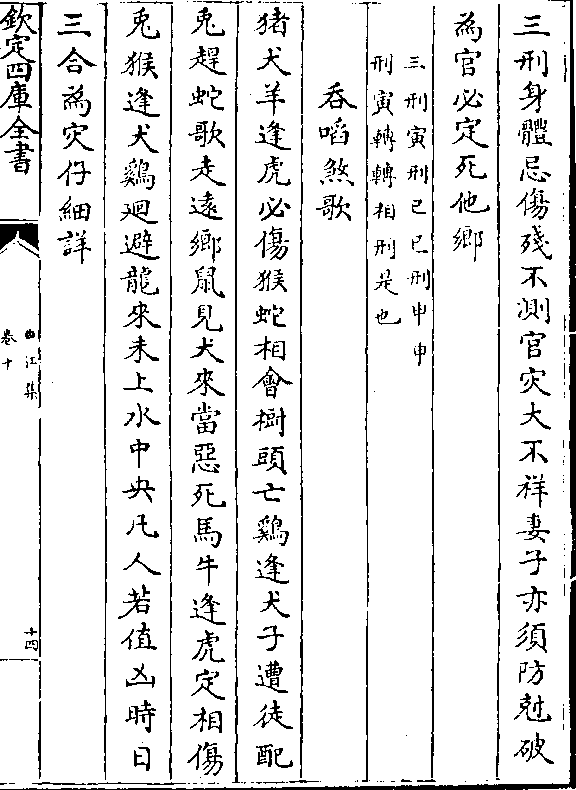 三刑身體忌傷殘不測官灾大不祥妻子亦須防尅破
為官必定死他鄉
三刑寅刑巳巳刑申申
刑寅轉轉相刑是也
吞啗煞歌
猪犬羊逢虎必傷猴蛇相會樹頭亡鷄逢犬子遭徒配
兎趕蛇歌走遠鄉鼠見犬來當惡死馬牛逢虎定相傷
兎猴逢犬鷄廻避龍來未上水中央凡人若值凶時日
三合為灾仔細詳
欽定四庫全書
卷十
十四